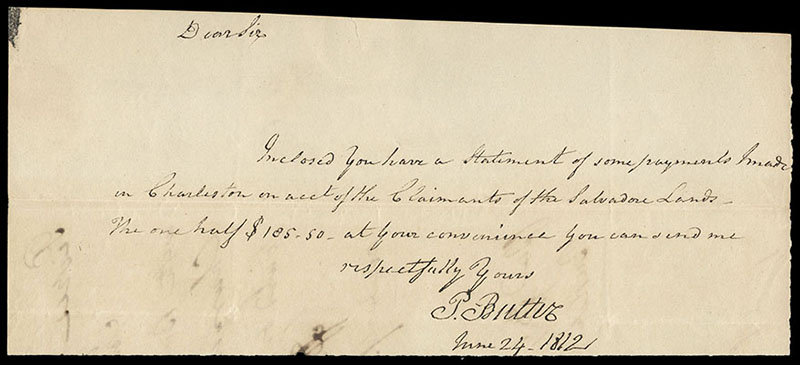 Dear Sir
Inclosed You have a Statement of some payments I made
in Charleston on acct of the Claimants of the Salvadore Lands -
The one half $185-50 - at Your convenience You can send me
respectfully Yours
P. Butler
June 24 - 1812